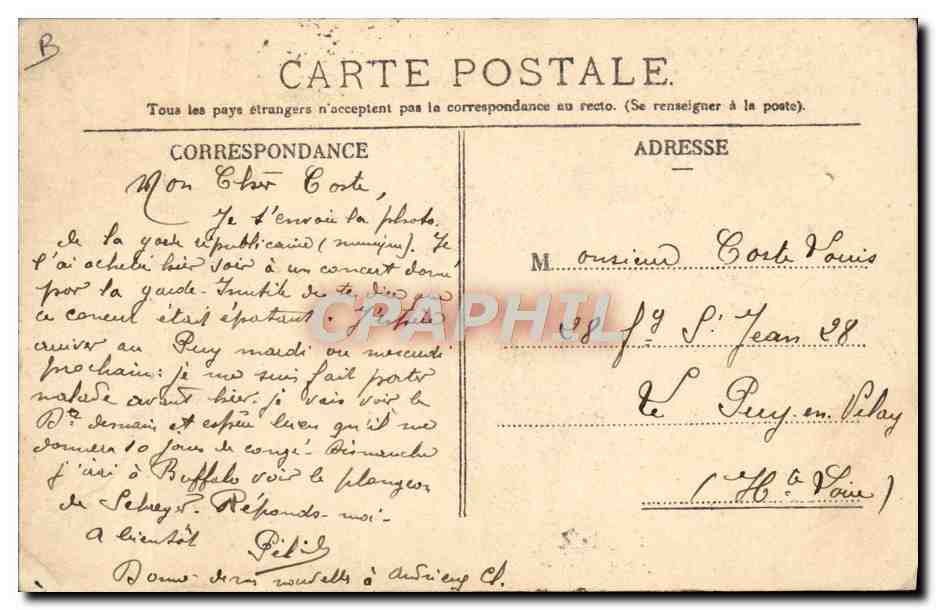 B
CARTE POSTALE.
Tous les pays étrangers n'acceptent pas la correspondance au recto. (Se renseigner à la poste).
CORRESPONDANCE
Mon Cher Coste,
Je t'envoie la photo
de la garde républicaine (musique). Je
l'ai acheté hier soir à un concert donné
par la garde. Inutile de te dire que
ce concert était épatant. J'espère
arriver au Puy mardi ou mercredi
prochain: je me suis fait porter
malade avant hier. je vais voir le
Dr demain et espère bien qu'il me
donnera 10 jours de congé. Dimanche
j'irai à Buffalo voir le plongeon
de Réponds-moi-
A bientôt
Donne de mes nouvelles à
ADRESSE
Monsieur Coste Louis
28 fg St Jean 28
Le Puy-en-Velay
(Hte Loire)
CPAPHIL